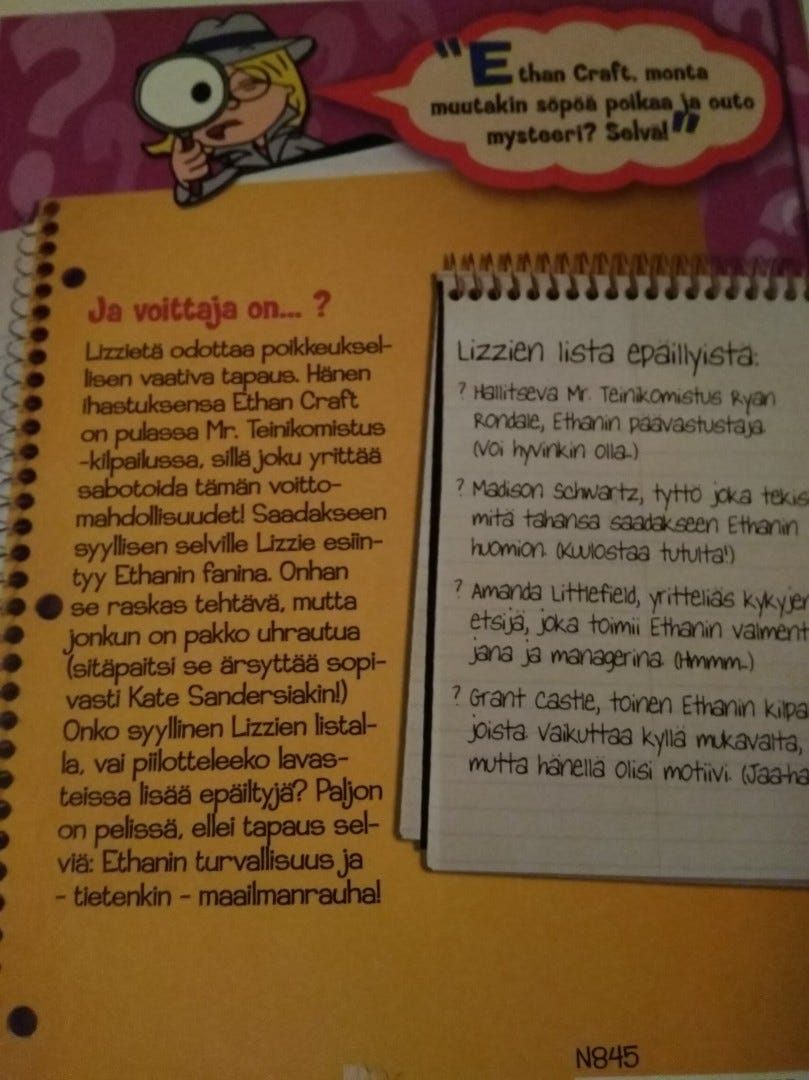 "Ethan Craft, monta
muutakin söpöä poikaa ja outo
mysteeri? Selvä!"
Ja voittaja on... ?
Lizzietä odottaa poikkeuksel-
lisen vaativa tapaus. Hänen
ihastuksensa Ethan Craft
on pulassa Mr. Teinikomistus
-kilpailussa, sillä joku yrittää
sabotoida tämän voitto-
mahdollisuudet! Saadakseen
syyllisen selville Lizzie esiin-
tyy Ethanin fanina. Onhan
se raskas tehtävä, mutta
jonkun on pakko uhrautua
(sitäpaitsi se ärsyttää sopi-
vasti Kate Sandersiakin!)
Onko syyllinen Lizzien listal-
la, vai piilotteleeko lavas-
teissa lisää epäiltyjä? Paljon
on pelissä, ellei tapaus sel-
viä: Ethanin turvallisuus ja
- tietenkin - maailmanrauha!
Lizzien lista epäillyistä:
? Hallitseva Mr. Teinikomistus Ryan
Rondale, Ethanin päävastustaja
(voi hyvinkin olla..)
? Madison Schwartz, tyttö joka tekis
mitä tahansa saadakseen Ethanin
huomion. (Kuulostaa tutulta!)
? Amanda Littlefield, yritteliäs kykyjen
etsijä, joka toimii Ethanin valment
jana ja managerina. (Hmmm..)
? Grant Castle, toinen Ethanin kilpa
joista. Vaikuttaa kyllä mukavalta,
mutta hänellä olisi motiivi. (Jaa-ha
N845